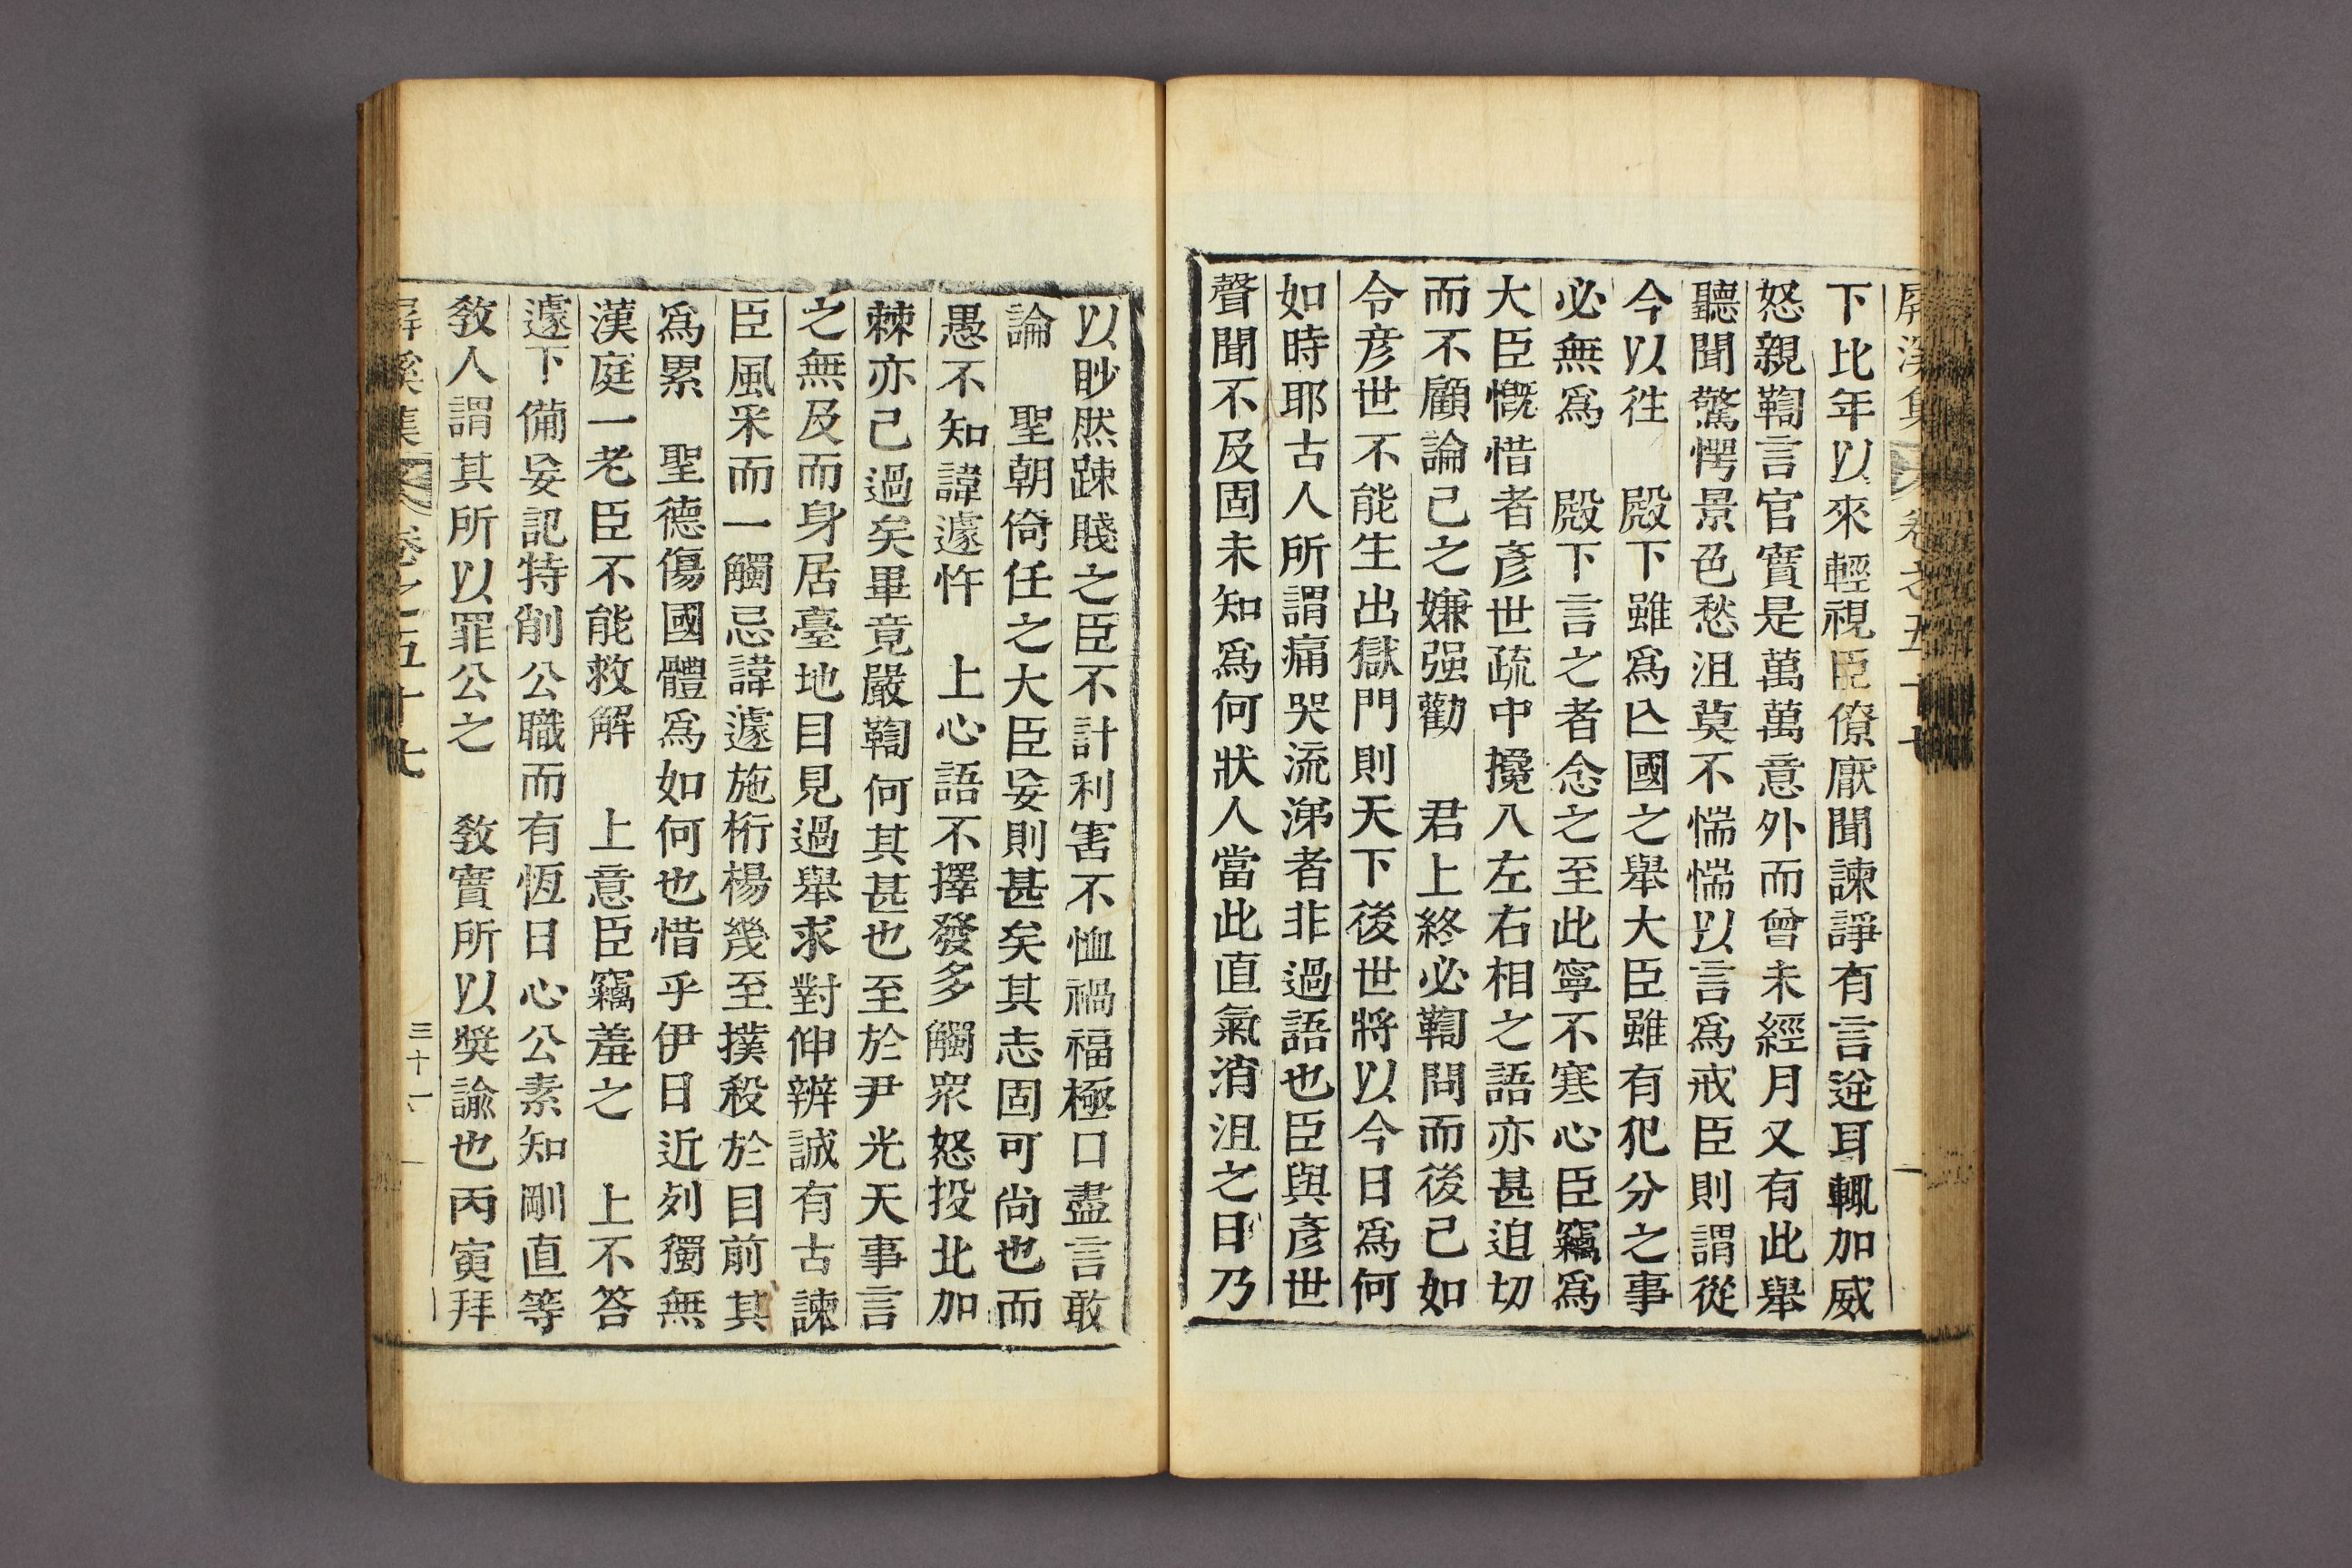 屛溪集 卷之五十七
下比年以來輕視臣僚厭聞諫諍有言逆耳輒加威
怒親鞫言官實是萬萬意外而曾未經月又有此擧
聽聞驚愕景色愁沮莫不惴惴以言爲戒臣則謂從
今以徃 殿下雖爲亡國之擧大臣雖有犯分之事
必無爲 殿下言之者念之至此寧不寒心臣竊爲
大臣慨惜者彦世疏中攙八左右相之語亦甚迫切
而不顧論己之嫌强勸 君上終必鞫問而後己如
令彦世不能生出獄門則天下後世將以今日爲何
如時耶古人所謂痛哭流涕者非過語也臣與彦世
聲聞不及固未知爲何狀人當此直氣消沮之日乃
以眇然踈賤之臣不計利害不恤禍福極口盡言敢
論 聖朝倚任之大臣妄則甚矣其志固可尙也而
愚不知諱遽忤 上心語不擇發多觸衆怒投北加
棘亦己過矣畢竟嚴鞫何其甚也至於尹光天事言
之無及而身居臺地目見過擧求對伸辨誠有古諫
臣風采而一觸忌諱遽施桁楊幾至撲殺於目前其
爲累 聖德傷國體爲如何也惜乎伊日近列獨無
漢庭一老臣不能救解 上意臣竊羞之 上不答
遽下備妄記特削公職而有恆日心公素知剛直等
敎人謂其所以罪公之 敎實所以奬諭也丙寅拜
屛溪集 卷之五十七
三十一